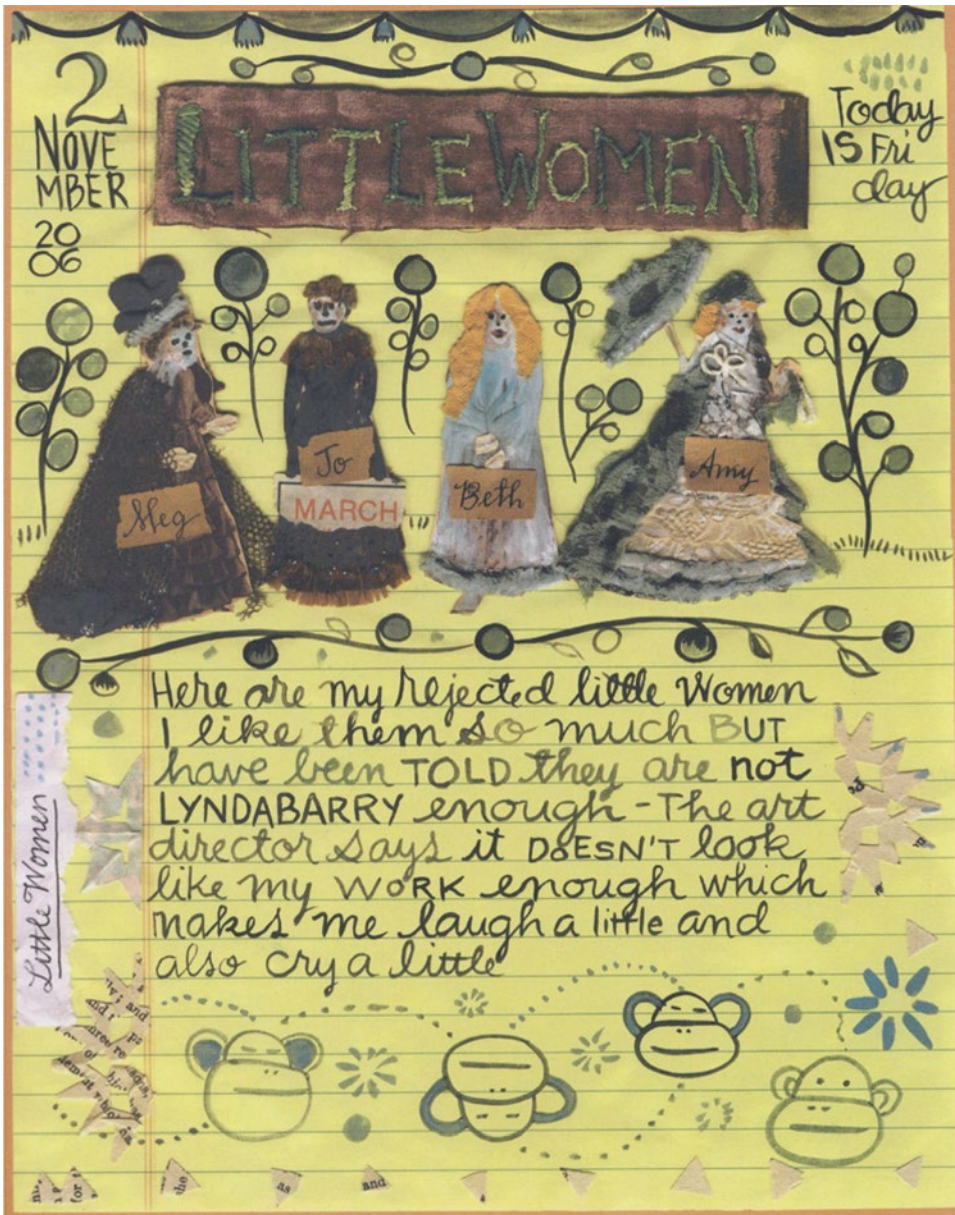 2
NOVE
MBER
20
06
LITTLE WOMEN
Today
IS Fri
day
Meg
Jo
MARCH
Beth
Amy
Here are my rejected little Women
I like them so much BUT
have been TOLD they are not
LYNDABARRY enough - The art
director says it DOESN'T look
like my WORK enough which
makes me laugh a little and
also cry a little
Little Women
and
of
she
as
and